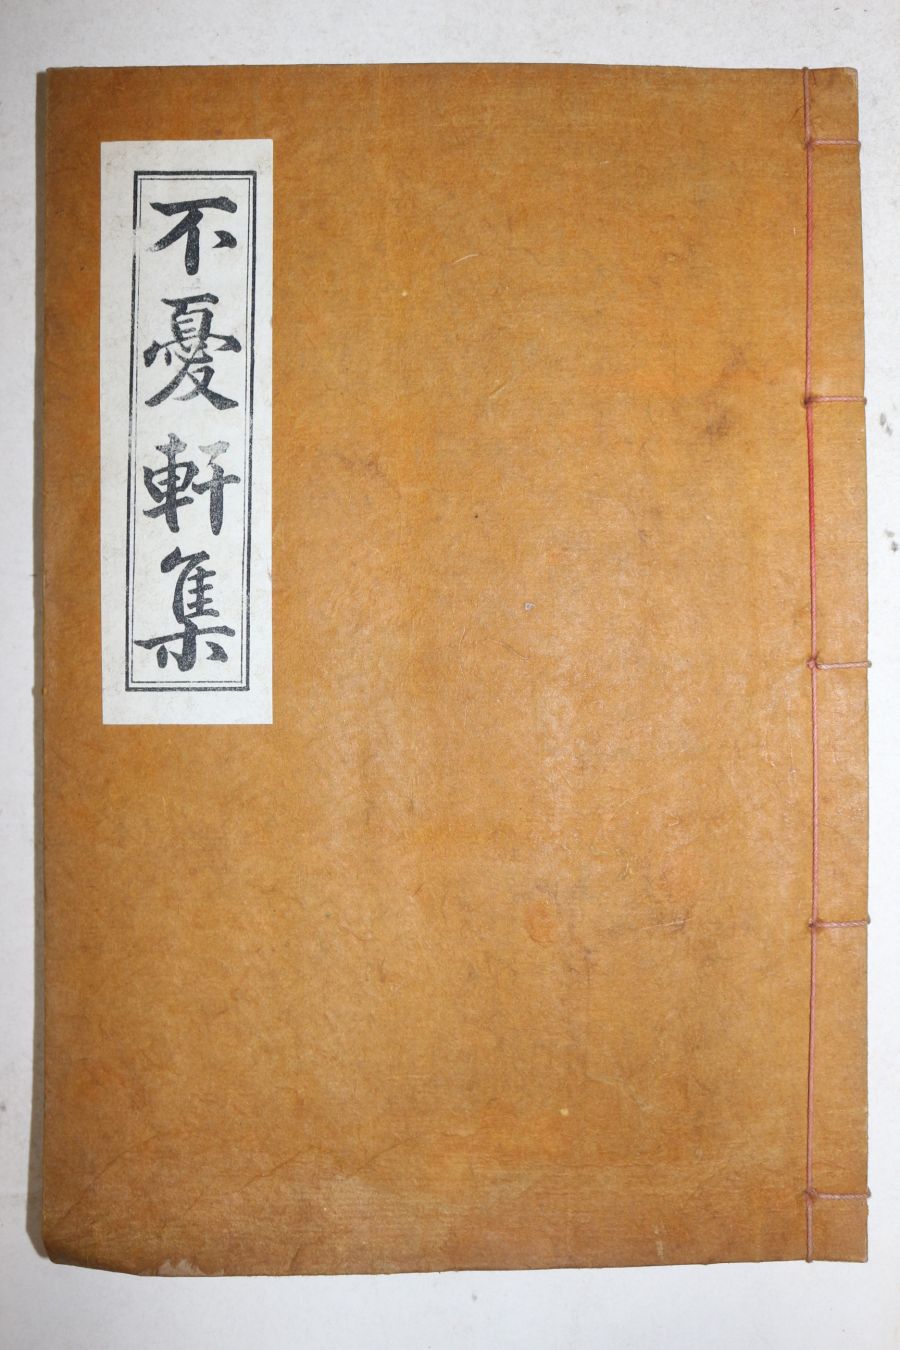 不憂軒集